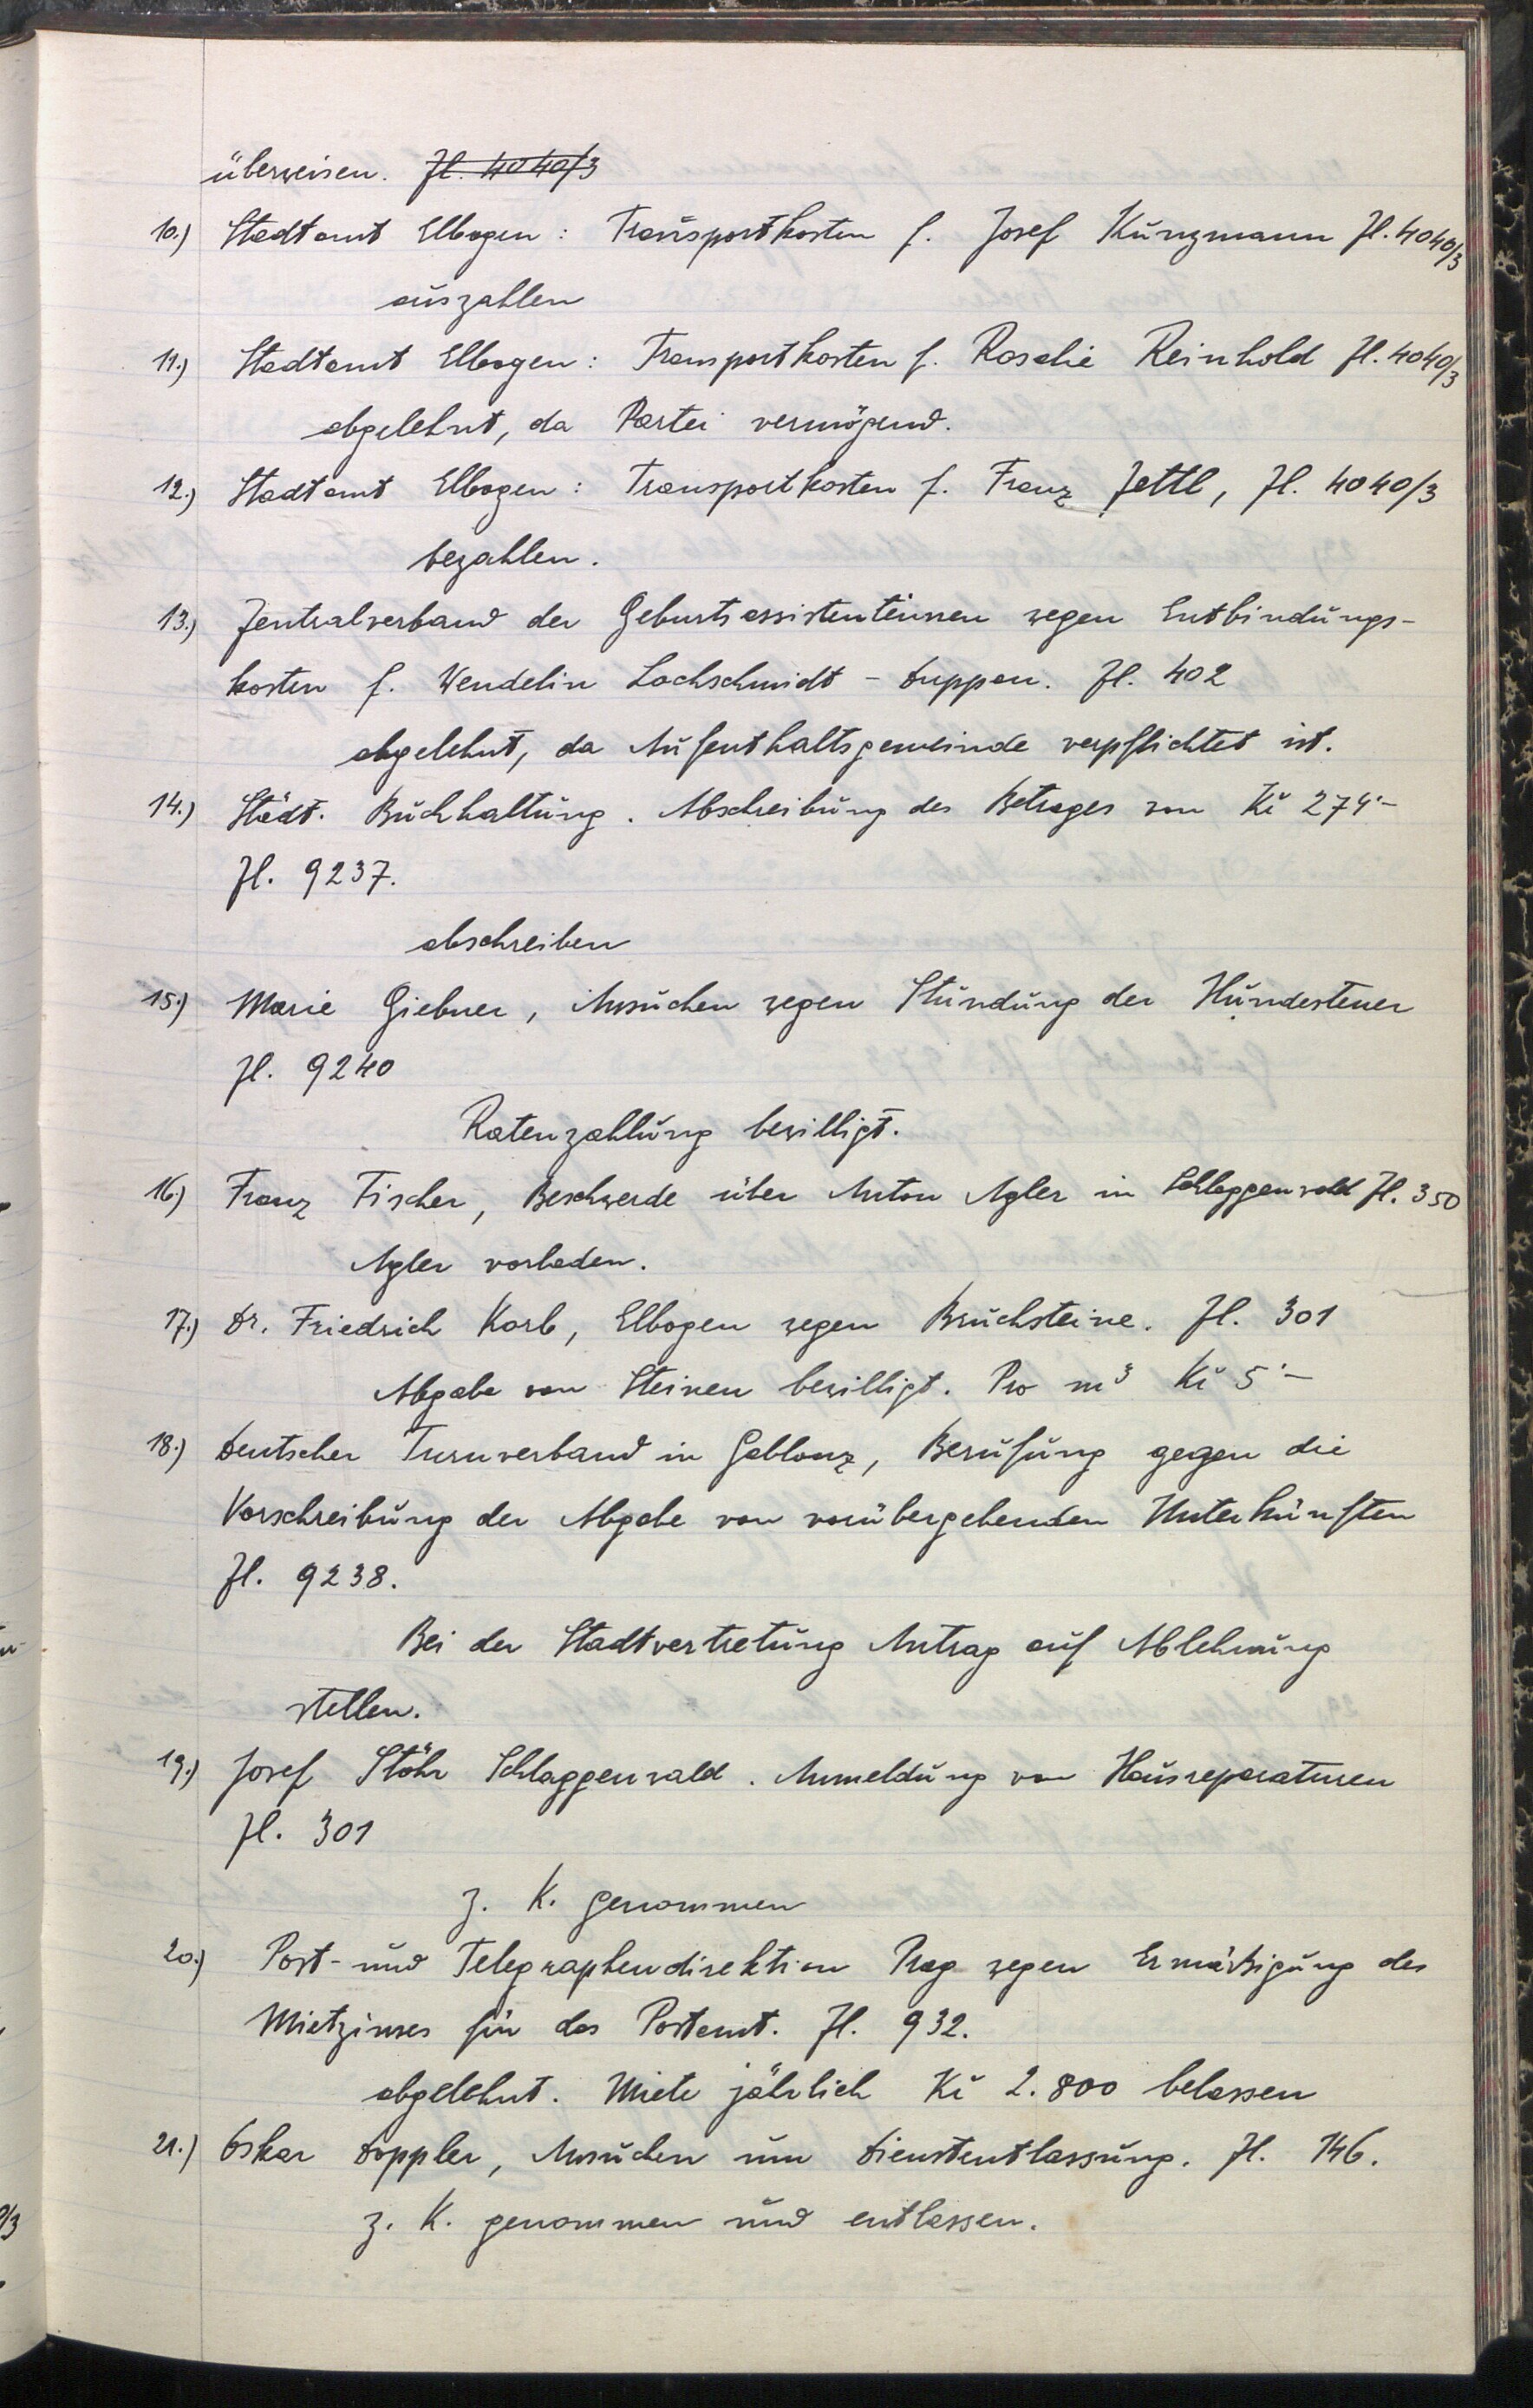 überweisen. Zl. 4040/3
10.) Stadtamt Elbogen: Transportkosten f. Josef Kunzmann Zl. 4040/3
auszahlen
11.) Stadtamt Elbogen: Transportkosten f. Rosalie Reinhold Zl. 4040/3
abgelehnt, da Partei vermögend.
12.) Stadtamt Elbogen: Transportkosten f. Franz Zettl, Zl. 4040/3
bezahlen.
13.) Zentralverband der Geburtsassistentinnen wegen Entbindungs-
kosten f. Wendelin Lochschmidt - Duppau. Zl. 402
abgelehnt, da Aufenthaltsgemeinde verpflichtet ist.
14.) Städt. Buchhaltung. Abschreibung des Betrages von Kč 274·-
Zl. 9237.
abschreiben
15.) Marie Giebner, Ansuchen wegen Stundung der Hundesteuer
Zl. 9240
Ratenzahlung bewilligt.
16.) Franz Fischer, Beschwerde über Anton Agler in Schlaggenwald Zl. 350
Agler vorladen.
17.) Dr. Friedrich Karb, Elbogen wegen Bruchsteine. Zl. 301
Abgabe von Steinen bewilligt. Pro m³ Kč 5·-
18.) Deutscher Turnverband in Gablonz, Berufung gegen die
Vorschreibung der Abgabe von vorübergehenden Unterkünften
Zl. 9238.
Bei der Stadtvertretung Antrag auf Ablehnung
stellen.
19.) Josef Stöhr Schlaggenwald. Anmeldung von Hausreparaturen
Zl. 301
z. K. genommen
20.) Post- und Telegraphendirektion Prag wegen Ermäßigung des
Mietzinses für das Postamt. Zl. 932.
abgelehnt. Miete jährlich Kč 2.800 belassen
21.) Oskar Doppler, Ansuchen um Dienstentlassung. Zl. 146.
z. K. genommen und entlassen.